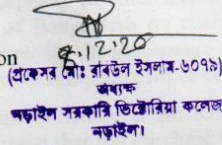 on
8.12.20
(প্রফেসর মোঃ রবিউল ইসলাম-৬০৭৯)
অধ্যক্ষ
নড়াইল সরকারি ভিক্টোরিয়া কলেজ
নড়াইল।